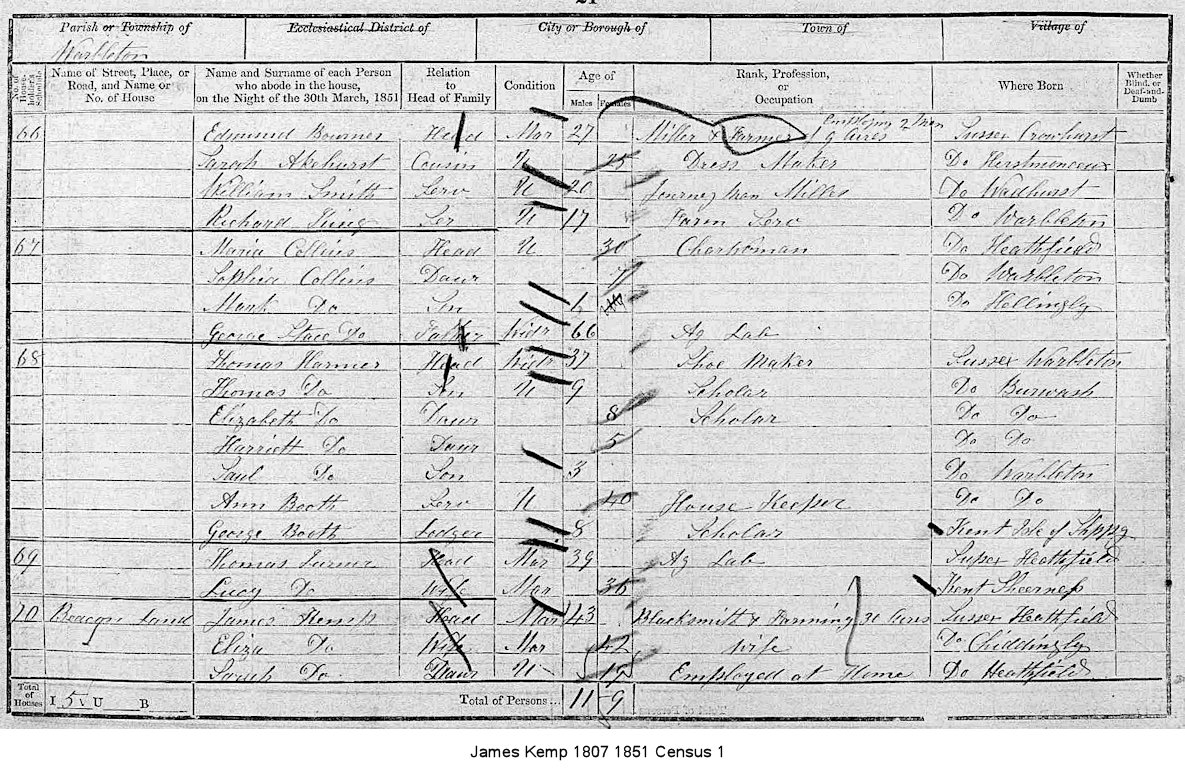 21
Parish or Township of Ecclesiastical District of City or Borough of Town of Village of
Warbleton
No. of House-holder's Schedule Name of Street, Place, or Road, and Name or No. of House Name and Surname of each Person who abode in the house, on the Night of the 30th March, 1851 Relation to Head of Family Condition Age of Males Females Rank, Profession, or Occupation Where Born Whether Blind, or Deaf-and-Dumb
66 Edmund Head Mar 27 Miller & Farmer 19 acres Employing 2 Men Sussex Crowhurst
Sarah Akehurst Cousin U 25 Dress Maker Do Herstmonceux
William Smith Serv U 20 Journey Man Miller Do Wadhurst
Richard King Ser U 17 Farm Serv Do Warbleton
67 Maria Collins Head U 30 Charwoman Do Heathfield
Sophia Collins Daur 7 Do Warbleton
Mark Do Son Do Hellingly
George Stace Do Father Widr 66 Ag Lab
68 Thomas Harmer Head Widr 37 Shoe Maker Sussex Warbleton
Thomas Do Son U 9 Scholar Do Burwash
Elizabeth Do Daur 8 Scholar Do Do
Harriett Do Daur 5 Do Do
Saul Do Son 3 Do Warbleton
Ann Booth Serv U 40 House Keeper Do Do
George Booth Lodger 8 Scholar Kent Isle of Sheppy
69 Thomas Turner Head Mar 29 Ag Lab Sussex Heathfield
Lucy Do Wife Mar 36 Kent Sheerness
70 Beacon Land James Kemp Head Mar 43 Blacksmith & Farming 30 Acres Sussex Heathfield
Eliza Do Wife Mar 42 Wife Do Chiddingly
Sarah Do Daur U 15 Employed at Home Do Heathfield
Total of Houses I 5 U B Total of Persons... 11 9
James Kemp 1807 1851 Census 1